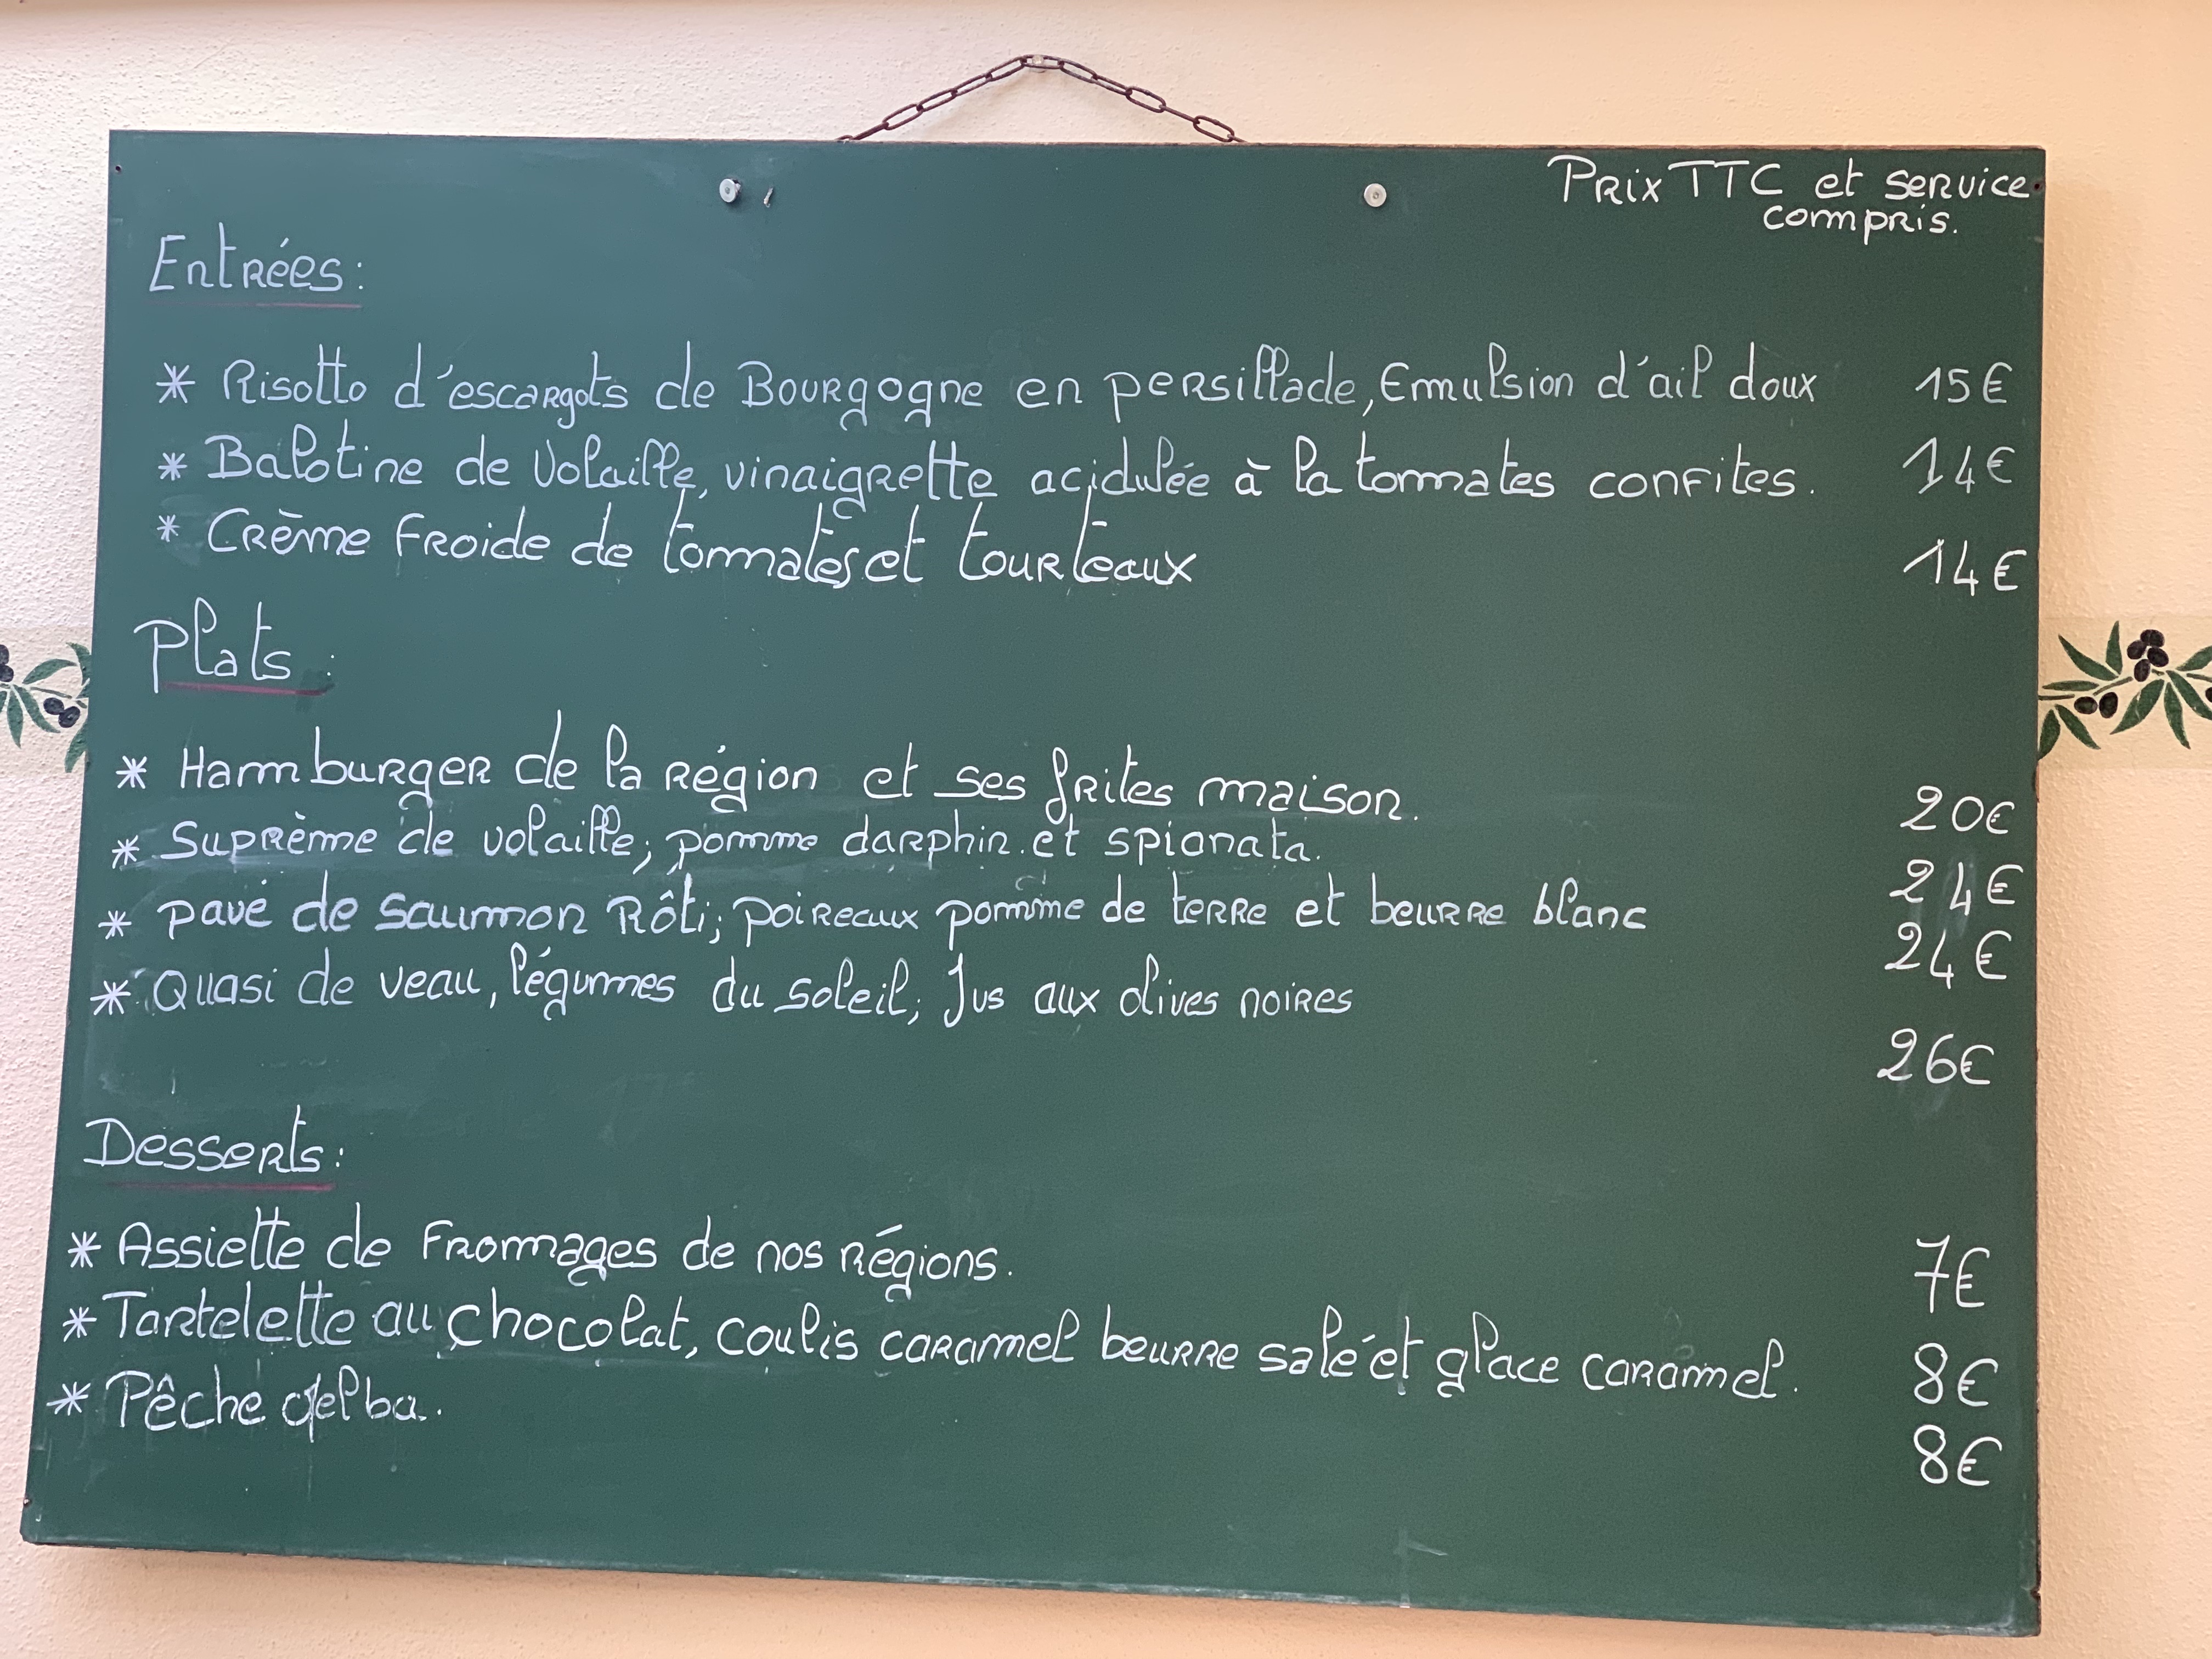 Prix TTC et service
compris.
Entrées:
* Risotto d'escargots de Bourgogne en persillade, Emulsion d'ail doux 15€
* Balotine de Volaille, vinaigrette acidulée à la tommates confites. 14€
* Crème froide de tommates et tourteaux 14€
Plats:
* Hamburger de la région et ses frites maison. 20€
* Suprème de volaille; pomme darphin et spianata. 24€
* pavé de saumon Rôti; poireaux pomme de terre et beurre blanc 24€
* Quasi de veau, légumes du soleil; Jus aux olives noires 26€
Desserts:
* Assiette de fromages de nos régions. 7€
* Tartelette au chocolat, coulis caramel beurre salé et glace caramel. 8€
* Pêche 8€